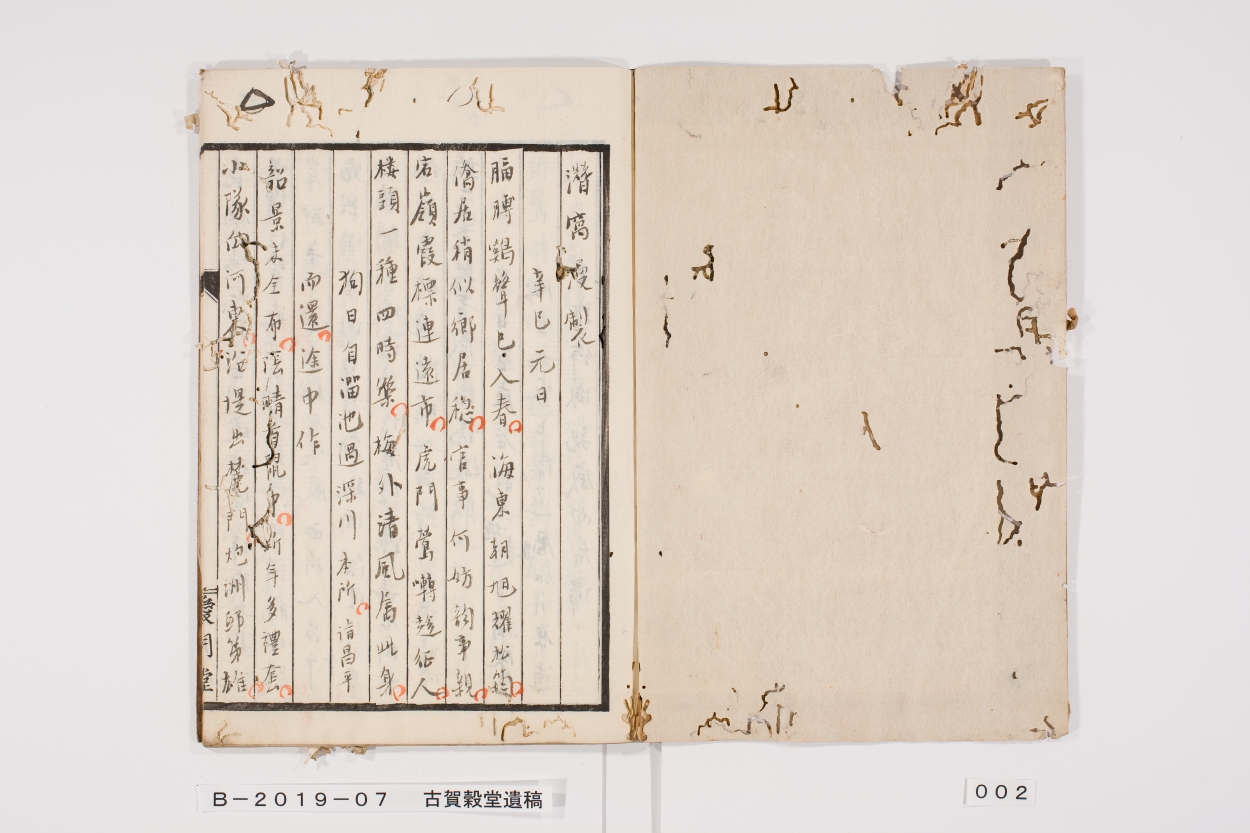 濳窩漫製
辛巳元日
膈膊鷄聲已入春海東朝旭耀松筠
僑居稍似鄉居穏信事何妨韵事親
宕嶺霞標連遠市虎門鶯囀趁征人
楼頭一種四時樂梅外清風属此身
狗日自溜池過深川本所詣昌平
而還途中作
韶景未全布陰晴首鼠争新年多禮套
小隊 河東沿堤出 門 洲邸第雄
愛月堂
B－2019－07　古賀穀堂遺稿
002